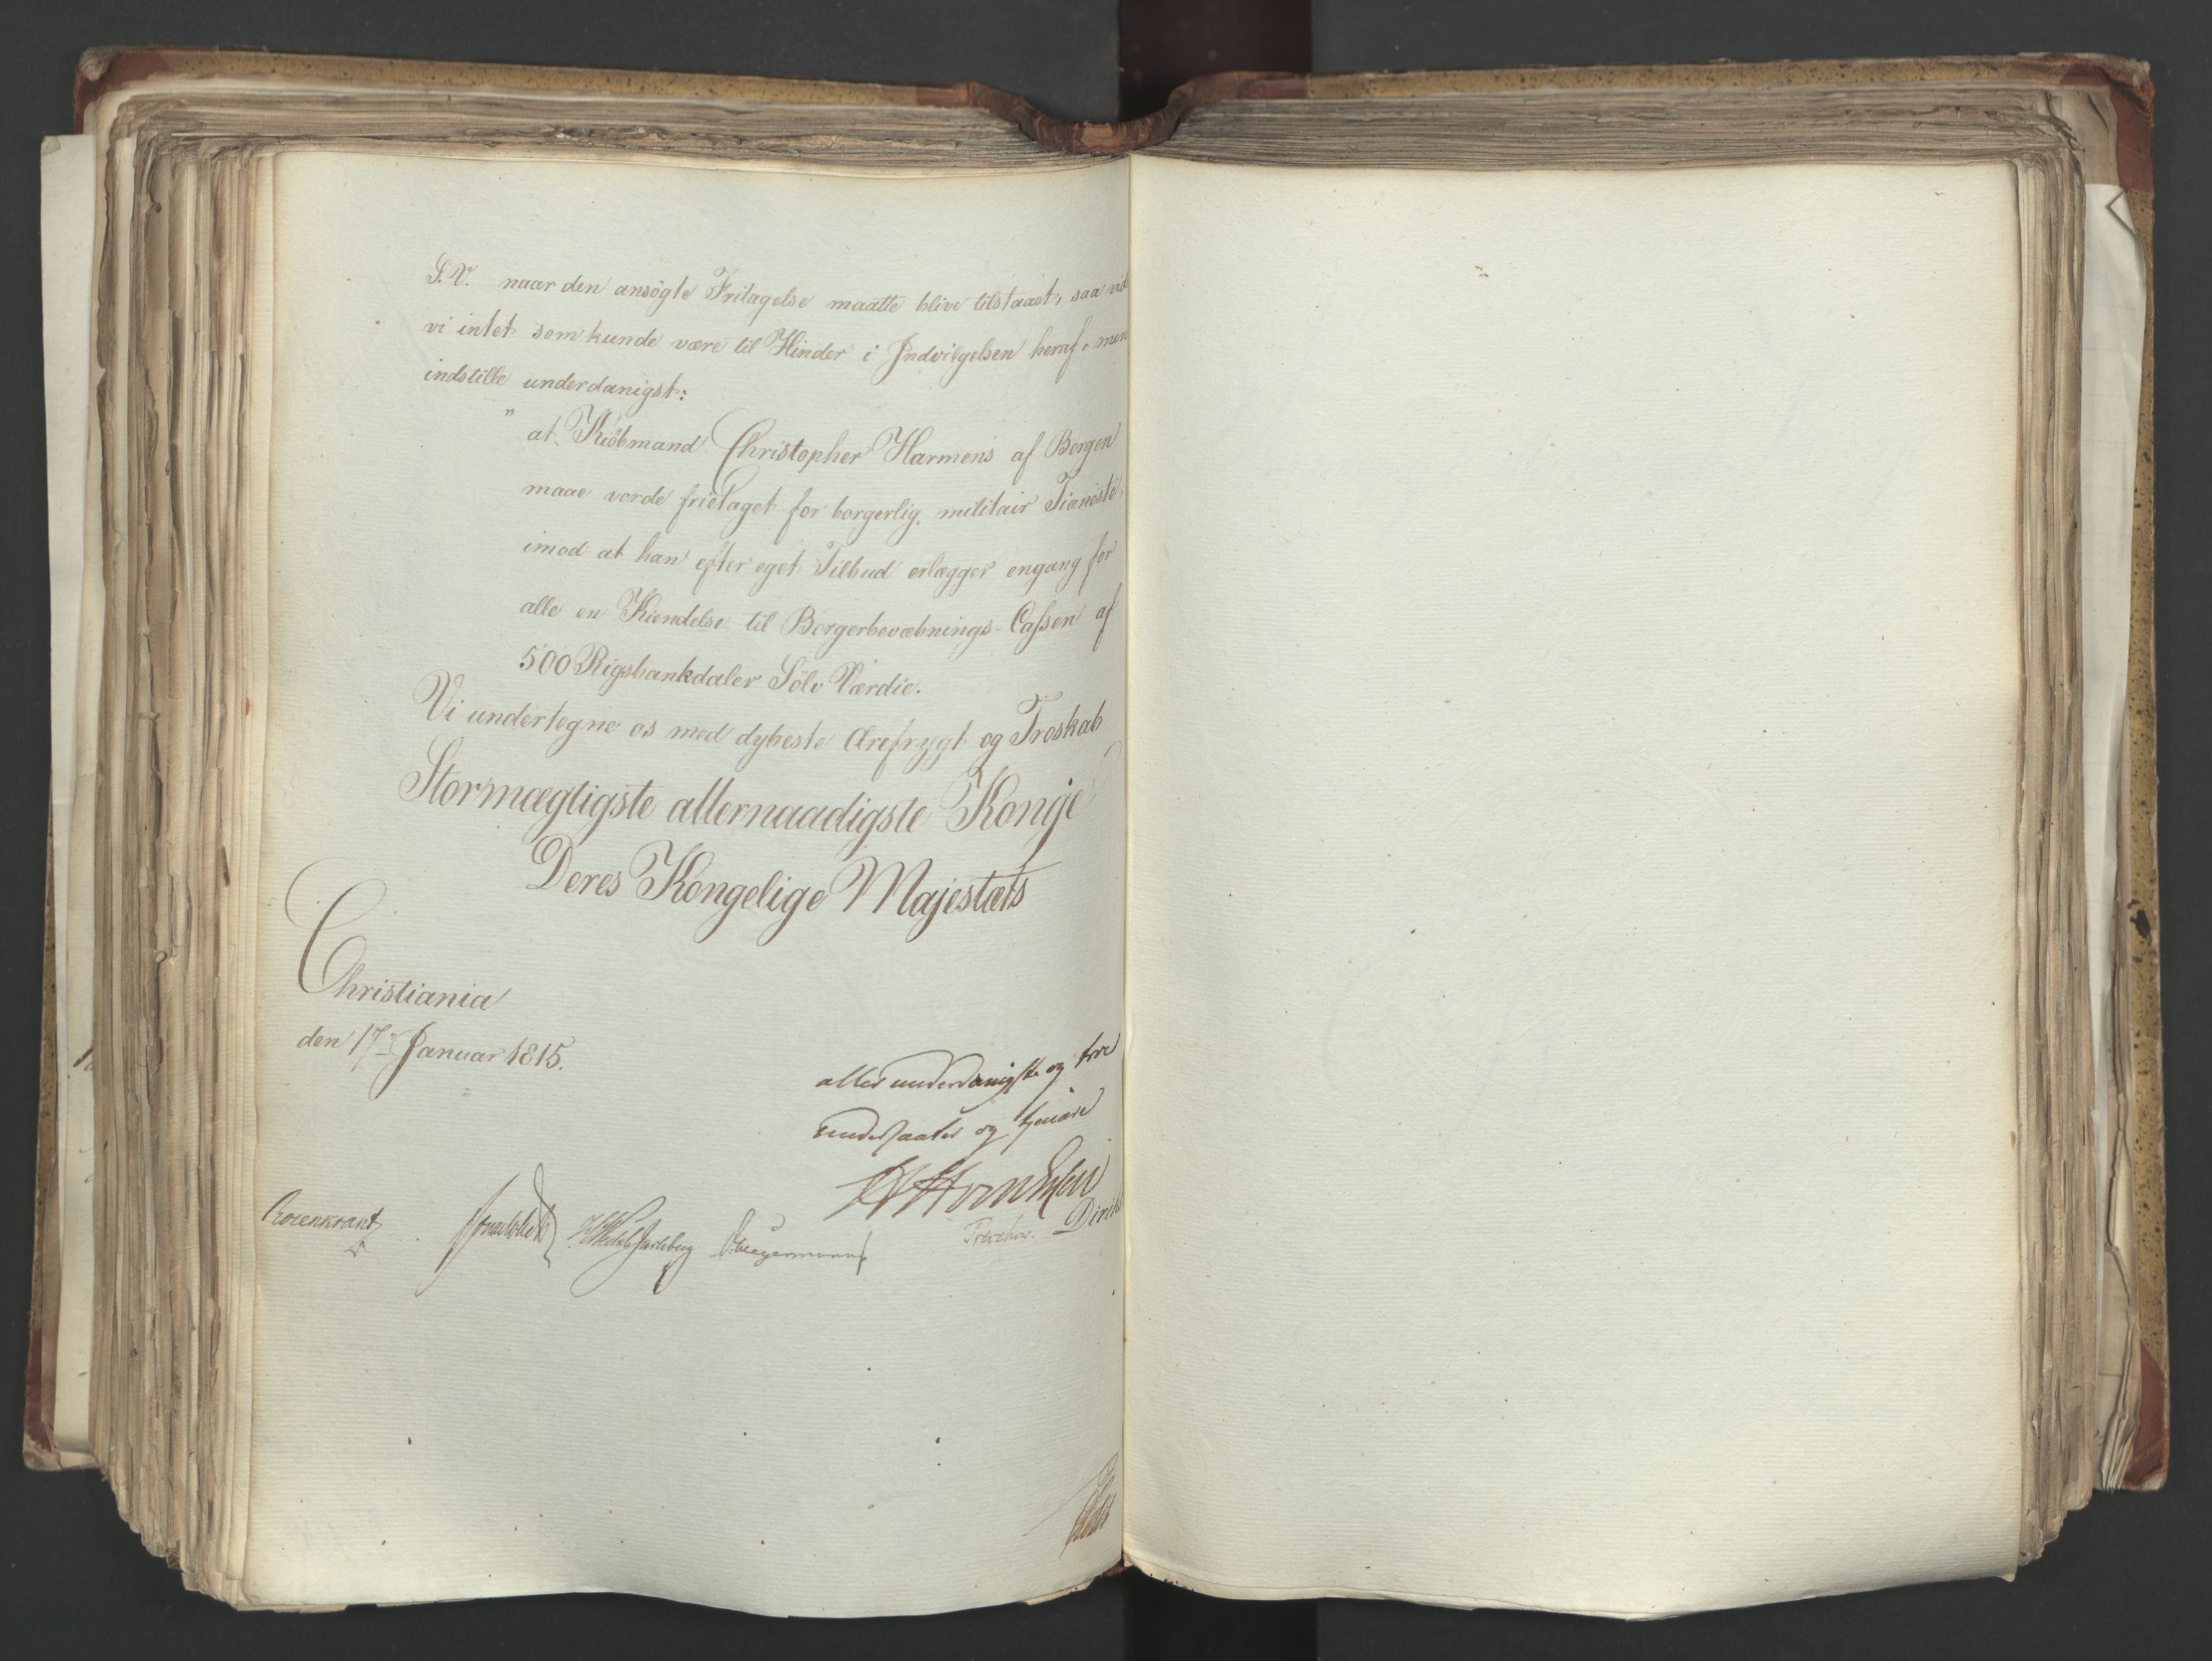 S.V. naar den ansögte Fritagelse maatte blive tilstaaet, saa vid
vi intet som kunde være til Hinder i Indvilgelsen heraf, men
indstille underdanigst:
" at Kiöbmand Christopher Harmens af Bergen
maae vorde frietaget for borgerlig militair Tieneste,
imod at han efter eget Tilbud erlægger engang for
alle en Kiendelse til Borgerbevæbnings-Cassen af
500 Rigsbankdaler Sölv Værdie.
Vi undertegne os med dybeste Ærefrygt og Troskab
Stormægtigste allernaadigste Konge
Deres Kongelige Majestæts
Christiania
den 17de Januar 1815.
allerunderdanigste og troe
undersaatter og tjenere
Rosenkrantz
Treschow Diriks